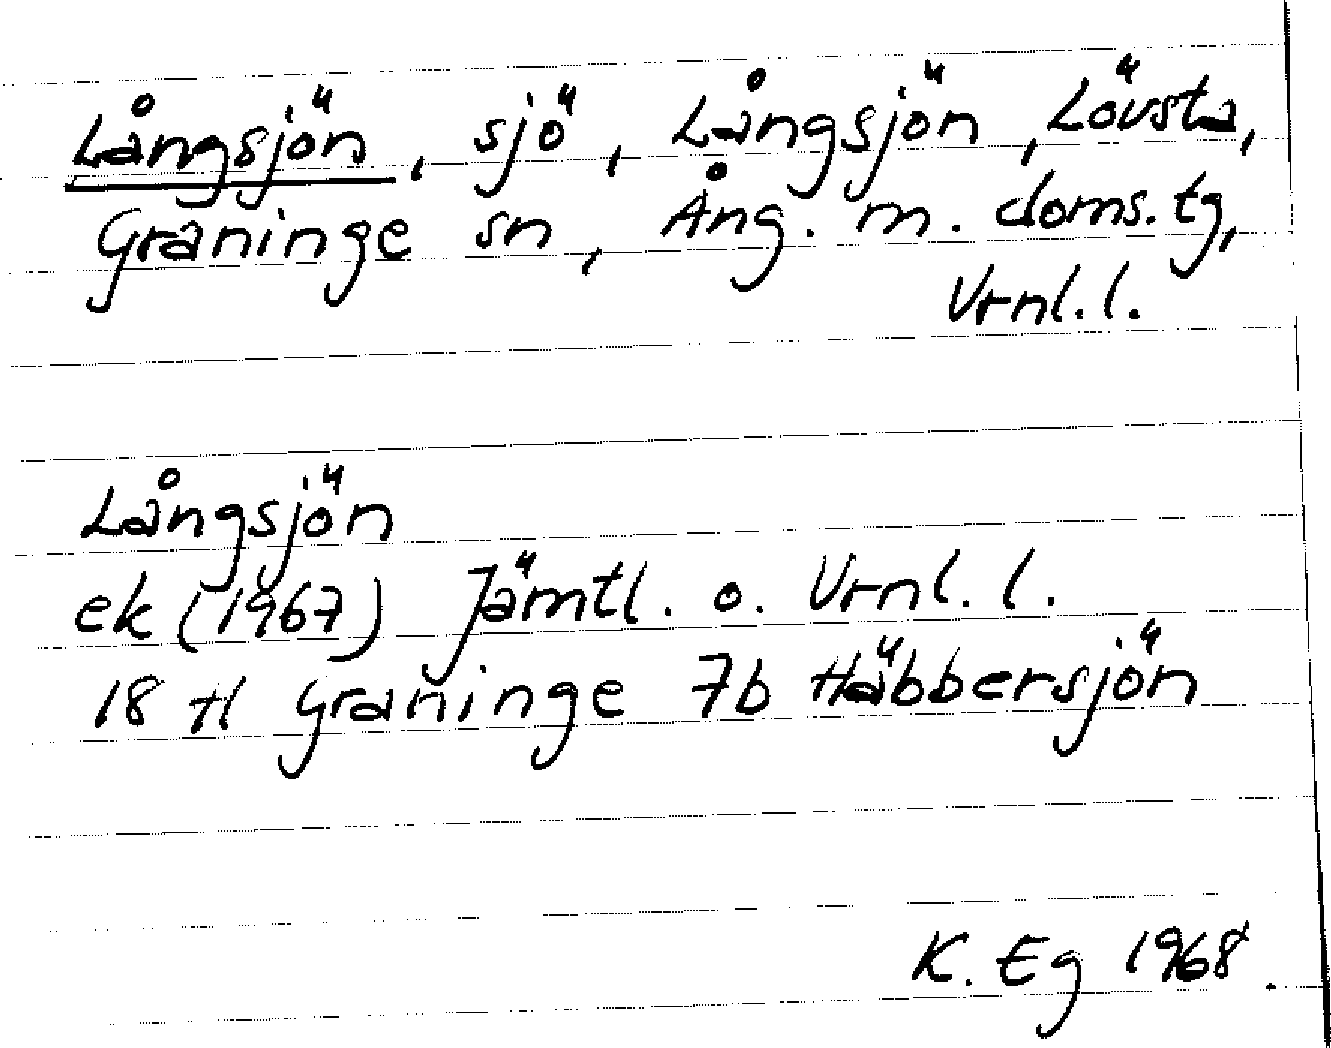 Långsjön, sjö, Långsjön, Lövsta,
Graninge sn, Ång. m. doms.tg,
Vrnl.l.
Långsjön
ek (1967) Jämtl. o. Vrnl. l.
18 H Graninge 7b Häbbersjön
K. Eg 1968.